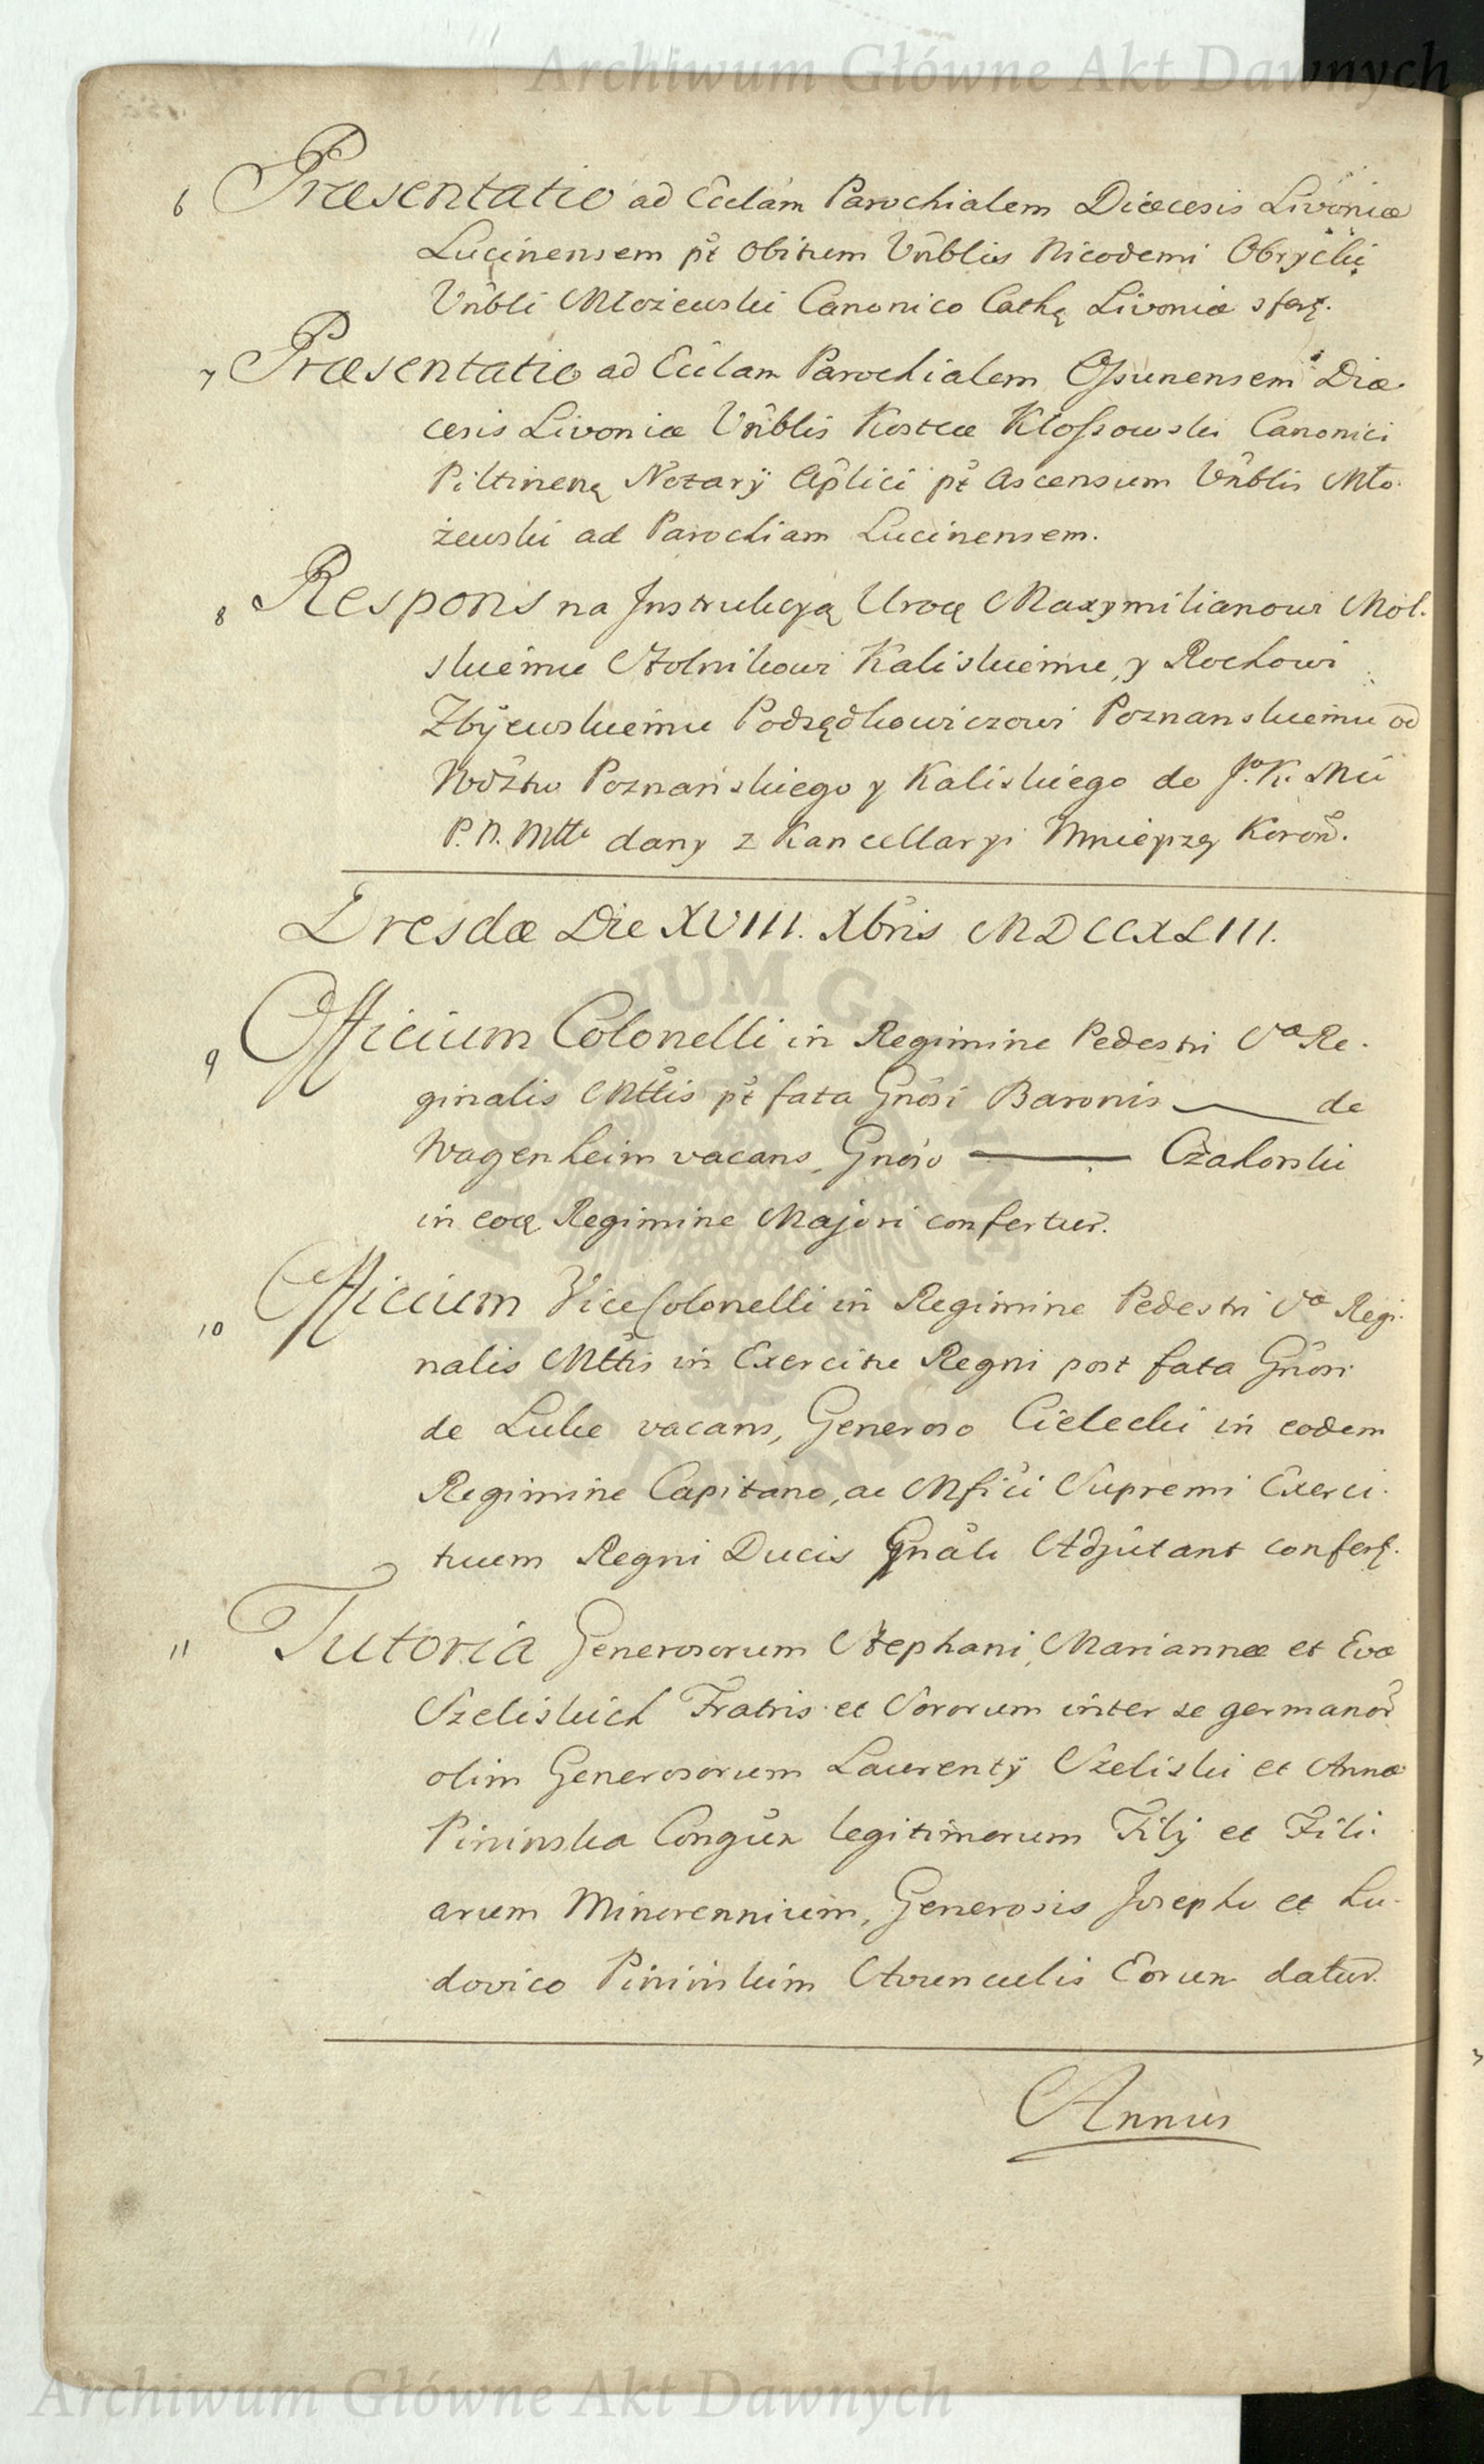 Archiwum Główne Akt Dawnych
6 Præsentatio ad Ecclam Parochialem Diæcesis Livoniæ
Lucinensem pt obitum Vnblis Nicodemi Obrycki
Vnbli Młożewski Canonico Cathę Livoniæ sfert.
7 Præsentatio ad Ecclam Parochialem Osunensem Diæ-
cesis Livoniæ Vnblis Kostcæ Kłossowski Canonici
Piltinenę Notarÿ Aplici pt Ascensum Vnblis Mło-
żewski ad Parochiam Lucinensem.
8 Respons na Instrukcyą Urocę Maxymilianowi Mol-
skiemu Stolnikowi Kaliskiemu, y Rochowi
Zbÿewskiemu Podsędkowiczowi Poznanskiemu od
Wdztw Poznańskiego y Kaliskiego do Jo. K. Mci
P. N. Mtt dany z Kancellaryi Mnieyszey Koron.
Dresdæ Die XVIII. Xbris MDCCXLIII.
9 Officium Colonelli in Regimine Pedestri Sæ Re-
ginalis Mttis pt fata Gnosi Baronis de
Wagenheim vacans, Gnoso Czakorski
in eoę Regimine Majori confertur.
10 Officium ViceColonelli in Regimine Pedestri Sæ Regi-
nalis Mttis in Exercitu Regni post fata Gnosi
de Luke vacans, Generoso Cielecki in eodem
Regimine Capitano, ac Mfici Supremi Exerci-
tuum Regni Ducis Gnali Adjutant confert.
11 Tutoria Generosorum Stephani, Mariannæ et Evæ
Szeliskich Fratris et Sororum inter se germanor
olim Generosorum Laurentÿ Szeliski et Annæ
Pininska Conguм legitimorum Filÿ et Fili-
arum Minorennium, Generosis Josepho et Lu-
dovico Pininskim Avunculis Eorum datur.
Annus
Archiwum Główne Akt Dawnych